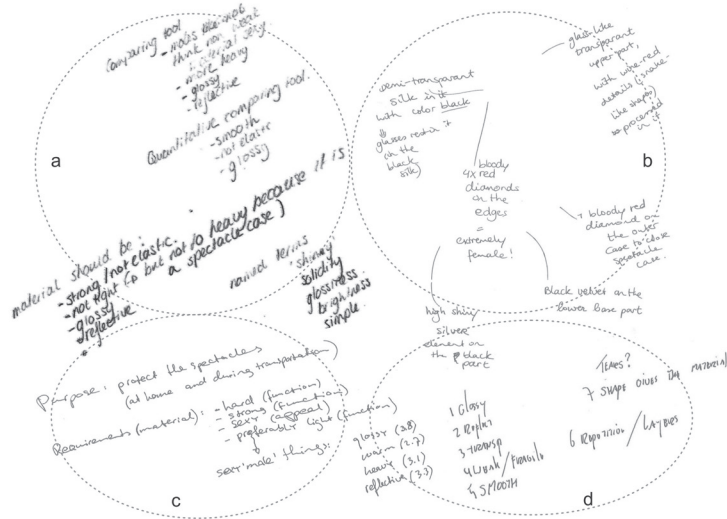 comparing tool
think non
material sexy.
- more heavy
- glossy
- reflective
Quantitative comparing tool.
- smooth
- not elastic
- glossy
a
material should be:
- strong / not elastic.
- not light ( but not to heavy because it is
a spectacle case)
- glossy
- reflective
named terms
shining
solidity
glossiness
brightness
simple.
semi-transparant
silk in it
with color black
glasses rest in it
(in the
black
silk)
glass-like
transparant
upper part,
with wine-red
details (snake-
like shapes)
processed
in it
b
4x bloody
red
diamonds
on the
edges
=
extremely
female!
1 bloody red
diamond on
the outer
case to close
spectacle
case.
Black velvet on the
lower base part
high shiny
silver
element on
the black
part
Purpose: protect the spectacles
(at home and during transportation)
Requirements (material): - hard (function)
- strong (function)
- sexy (appeal)
- preferably light (function)
sexy 'male' things:
c
glossy (3.8)
warm (2.7)
heavy (3.1)
reflective (3.3)
1 Glossy
3 transp
5 Smooth
7 Shape gives the material
6 Repetition / Layers
d